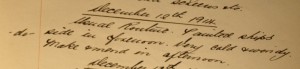 December 12th 1914.
Usual Routine. Painted ships
-do- side in forenoon. Very cold & windy
Make & mend in afternoon.
December